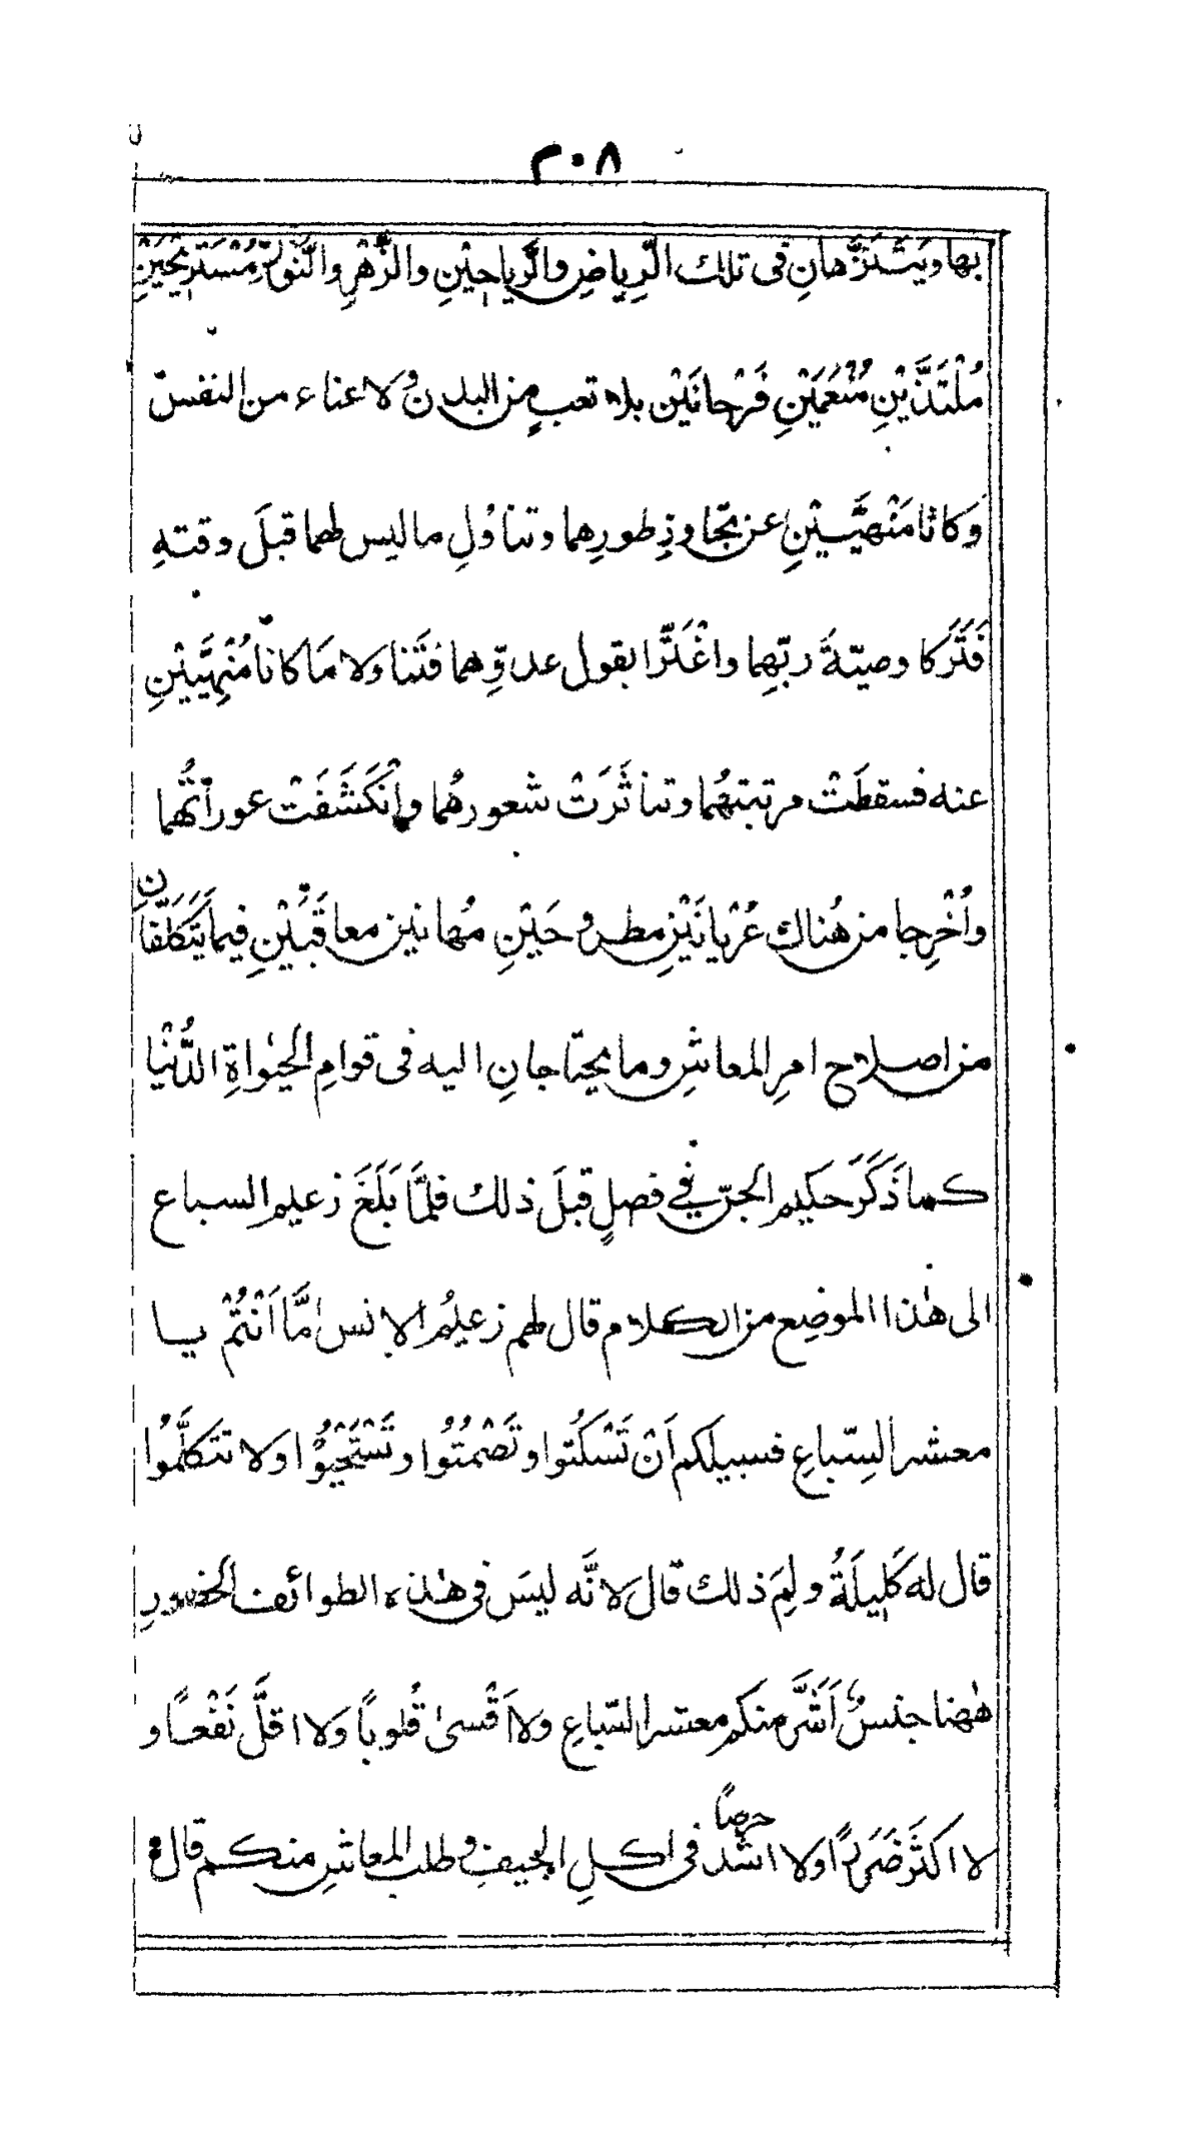 ٢٠٨
بها ويَتَنَزَّهانِ فى تلك الرِّياضِ والرَّياحِيْنِ والزَّهْرِ والنَّوْرِ مُسْتَرِيْحَيْنِ
مُلْتَذَّيْنِ مُنْعَمَيْنِ فَرْحانَيْن بلا تعبٍ من البدن ولا عناء من النفس
وكانا مَنْهِيَّيْنِ عن تجّاوزِ طورِهما وتناوُلِ ما ليس لهما قبلَ وقتهِ
فَتَرَكا وصيّةَ ربّهِما واغْتَرّا بقول عدوِّهما فتَناولا مَا كانا مَنْهِيَّيْنِ
عنه فسقطَتْ مرتبتهُما وتناثَرَتْ شعورهُما وانْكَشَفَتْ عوراتُهُما
واُخْرِجا من هُناك عُرْيانَيْنِ مطروحَيْنِ مُهانين معاقَبَيْنِ فيما يَتَكَلَّفانِ
من اصلاح امرِ المعاشِ وما يحتاجانِ اليه فى قوامِ الحيٰواةِ الدُّنْيا
كما ذَكَرَ حكيم الجنّ في فصلٍ قبلَ ذلك فلمَّا بَلَغَ زعيم السباع
الى هٰذا الموضِع من الكلام قال لهم زعيمُ الانس اَمَّا اَنْتُمْ يا
معشر السِّباعِ فسبيلكم اَنْ تَسْكُتوا وتَصْمُتُوا وتَسْتَحْيُوْا ولا تتكلَّمُوا
قال له كَلِيلَةُ ولِمَ ذلك قال لانَّه ليسَ فى هٰذه الطوائف الحضورِ
هٰهنا جنسٌ اَشَّرَ منكم معشر السّباعِ ولا اَقْسىٰ قُلوباً ولا اقلَّ نَفْعًا و
لا اكثَر ضَرَرًا ولا اشدّ حرصاً فى اكلِ الجيفِ وطلب المعاشِ منكم قال